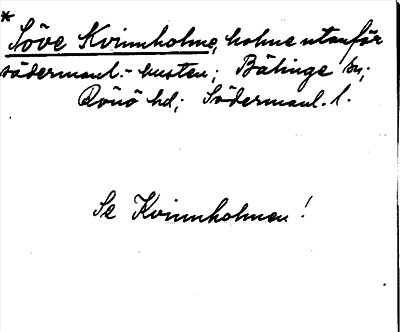 *
Növe Kvinnholme, holme utanför
södermanl.-kusten; Bälinge sn;
Rönö hd; Södermanl. l.
Se Kvinnholmen!